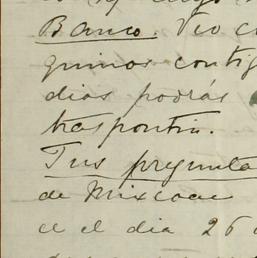 Banco. Veo c
quinos contig
dias podrás
traspontin.
Tus pregunta
de Mixcoac
e el dia 26